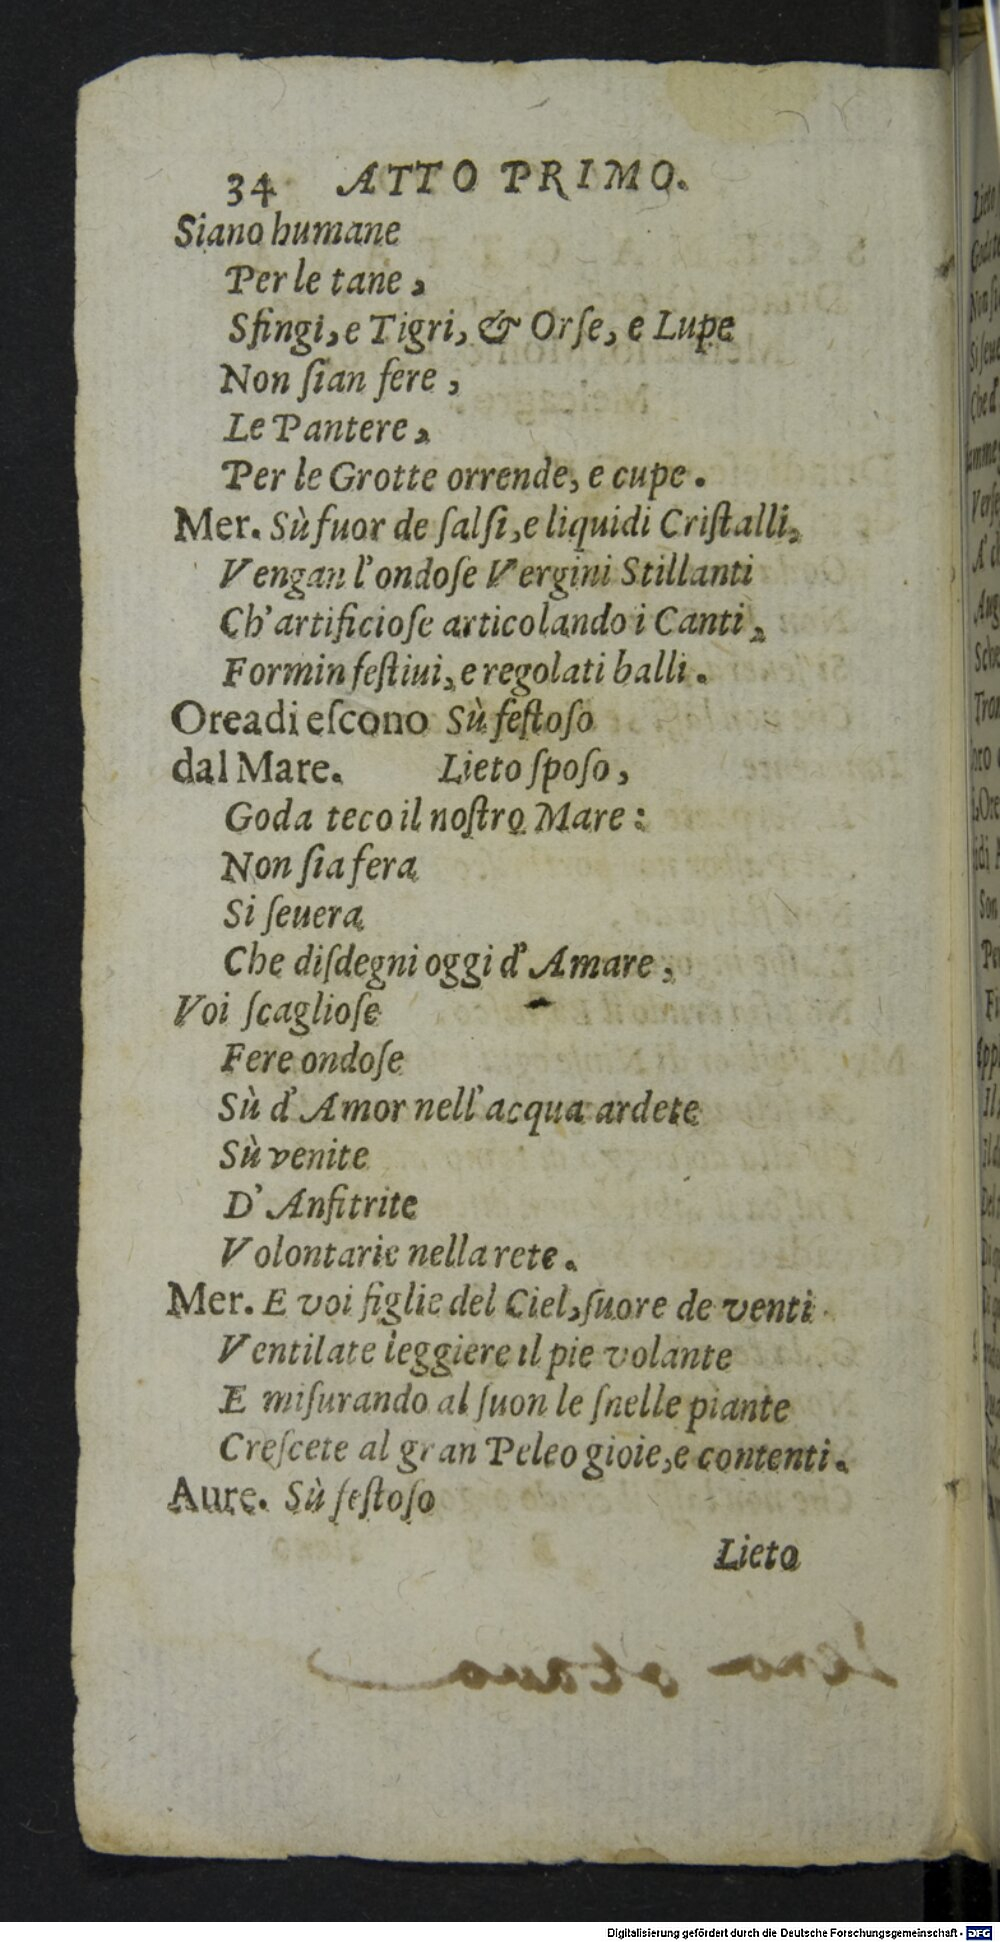 34 ATTO PRIMO.
Siano humane
Per le tane,
Sfingi, e Tigri, & Orſe, e Lupe
Non ſian fere,
Le Pantere,
Per le Grotte orrende, e cupe.
Mer. Sù fuor de ſalſi, e liquidi Criſtalli,
Vengan l'ondoſe Vergini Stillanti
Ch'artificioſe articolando i Canti,
Formin feſtiui, e regolati balli.
Oreadi eſcono Sù feſtoſo
dal Mare. Lieto ſpoſo,
Goda teco il noſtro Mare:
Non ſia fera
Si ſeuera
Che diſdegni oggi d'Amare,
Voi ſcaglioſe
Fere ondoſe
Sù d'Amor nell'acqua ardete
Sù venite
D'Anfitrite
Volontarie nella rete.
Mer. E voi figlie del Ciel, ſuore de venti
Ventilate leggiere il pie volante
E miſurando al ſuon le ſnelle piante
Creſcete al gran Peleo gioie, e contenti.
Aure. Sù feſtoſo
Lieto
Digitalisierung gefördert durch die Deutsche Forschungsgemeinschaft - DFG